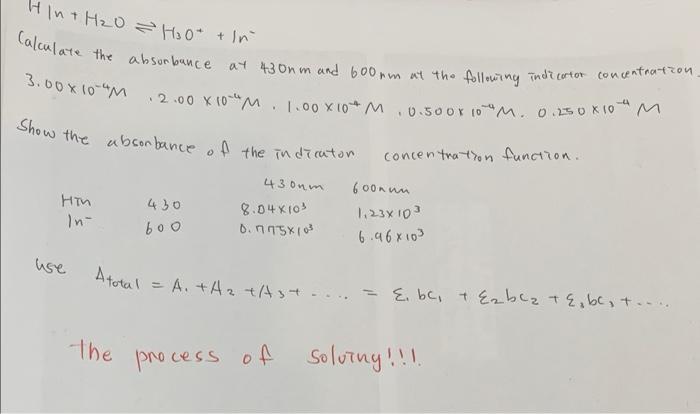 HIn + H2O ⇌ H3O+ + In-
Calculate the absorbance at 430nm and 600nm at the following indicator concentration.
3.00 x 10-4M . 2.00 x 10-4M . 1.00 x 10-4 M . 0.500 x 10-4M . 0.250 x 10-4 M
Show the absorbance of the indicator concentration function.
430nm 600nm
HIn 430 8.04 x 10³ 1.23 x 10³
In- 600 0.775 x 10³ 6.96 x 10³
use Atotal = A1 + A2 + A3 + ..... = ε1bc1 + ε2bc2 + ε3bc3 + ....
the process of solving!!!.